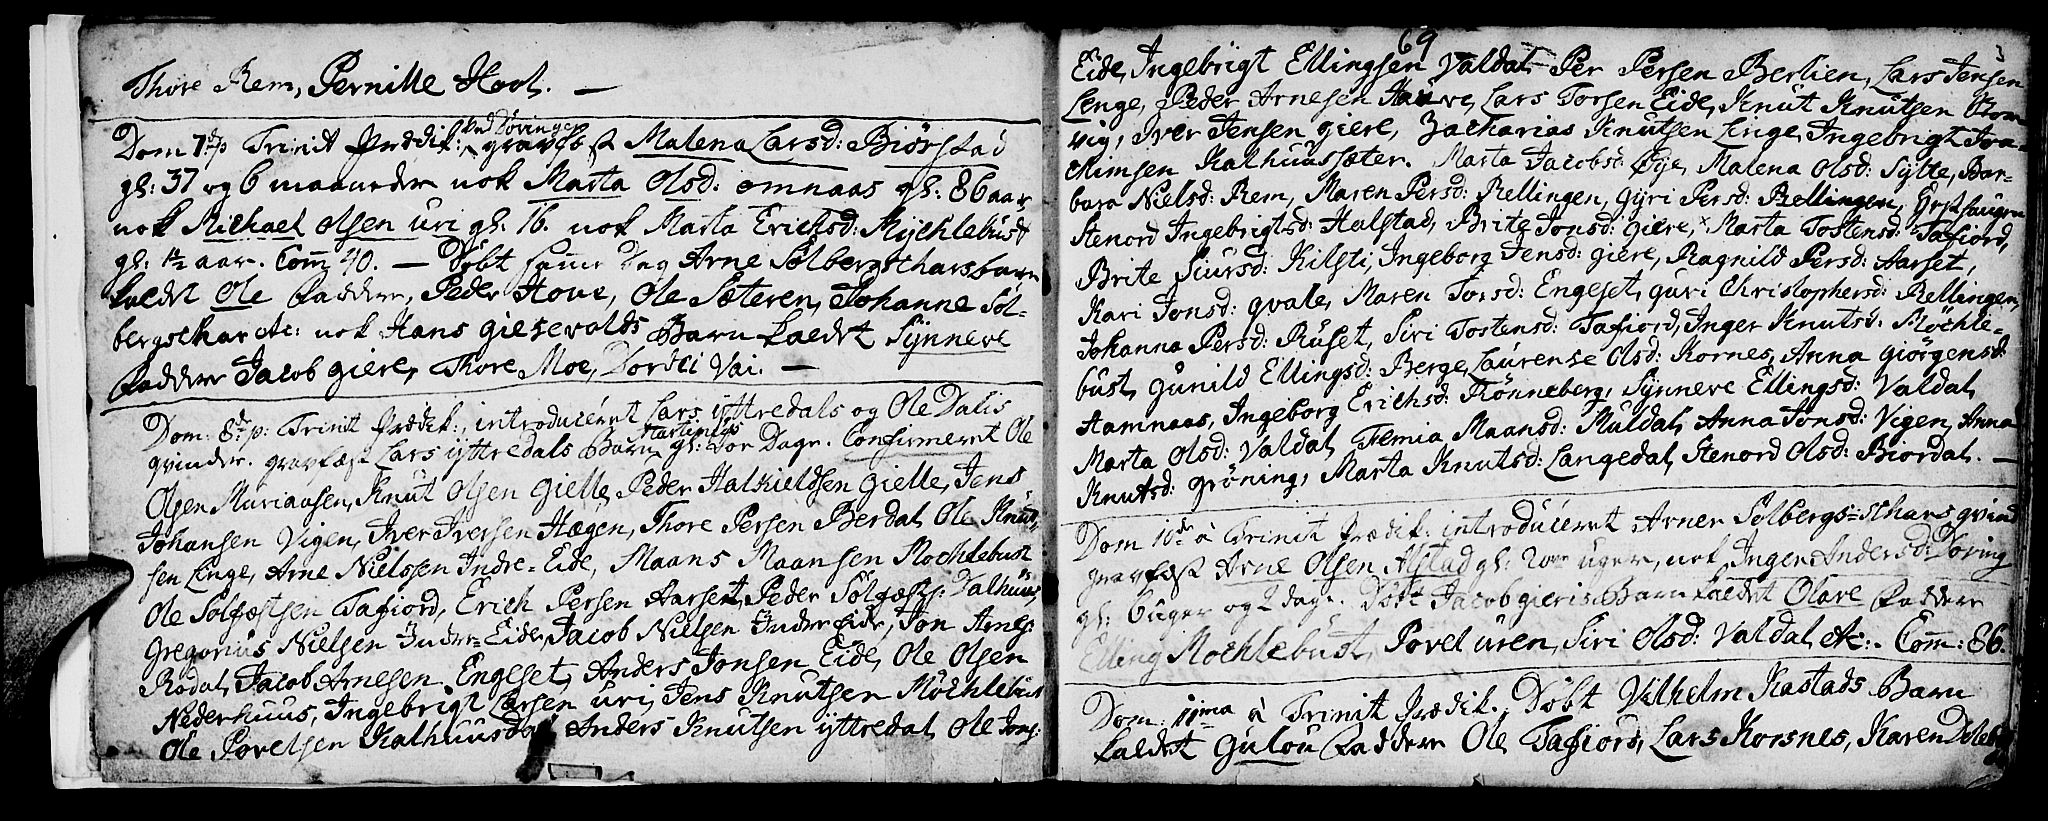 Thore Rem, Pernille Hool. —
Dom 7de p Trinit Prædik: gravfæst Malena Larsd: Biørstad
gl: 37 og 6 maaneder nok Marta Olsd: omnaas gl: 86 aar
nok Michael Olsen uri gl: 16. nok Marta Erichsd: Mÿchlebust
gl: 1½ aar. Com 40. — Døbt samme Dag Arne Solbergscharsbarn
kaldet Ole Faddere, Peder Hove, Ole Sæteren, Johanne Sol-
bergschar etc: nok Hans giesevolds Barn kaldet Sÿnneve
Faddere Jacob giere, Thore Moe, Dordei Vai. —
Dom: 8de p: Trinit Prædik:, introduceret Lars ÿttredals og Ole Dalis
Martinus
qvinder. gravfæst Lars ÿttredals Barn gl: Dage. Confirmeret Ole
Olsen Muriaasen, Knut Olsen Gielle, Peder Halkieldsen Gielle, Jens
Johansen Vigen, Iver Iversen Hægen, Thore Persen Berdal, Ole Knut-
sen Linge, Arne Nielssen Indre-Eide, Maans Maansen Mochlebust
Ole Solfæstsen Tafiord, Erich Persen Aarset, Peder Solfæsts: Dalhuus,
Gregorius Nielsen Indre-Eide, Jacob Nielsen Indre Eide, Jon Arnes:
Rødal, Jacob Arnesen Engeset, Anders Jonsen Eide, Ole Olsen
Nederhuus, Ingebrigt Larsen uri, Jens Knutsen Möchlebust
Ole Povelsen Kalhuusdal Anders Knutsen ÿttredal, Ole Jons:
69
Eide, Ingebrigt Ellingsen Valdal, Per Persen Berlien, Lars Jensen
Linge, Peder Arnesen Hauve, Lars Torsen Eide, Knut Knutsen
vig, Iver Jensen giere, Zacharias Knutsen Linge, Ingebrigt Joa-
chimsen Kalhuussæter. Marta Jacobsd: Øye, Malena Olsd: Sÿlte, Bar-
bara Nielsd: Rem, Maren Persd: Rellingen, Gÿri Persd: Rellingen,
Stenord Ingebrigtsd: Halstad, Brite Jonsd: giere, Marta Tostensd: Tafiord,
Brite Siursd: Kilsti, Ingeborg Jensd: giere, Ragnild Persd: Aarset,
Kari Jonsd: qvale, Maren Torsd: Engeset, guri Christophersd: Rellingen,
Johanna Persd: Ruset, Siri Tostensd: Tafiord, Inger Knutsd: Möchle-
bust, Gunild Ellingsd: Berge, Laurense Olsd: Kornes, Anna Giörgensd:
Hamnaas, Ingeborg Erichsd: Rönneberg, Sÿnneve Ellingsd: Valdal,
Marta Olsd: Valdal, Femia Maansd: Muldal, Anna Jonsd: Vigen, Anna
Knutsd: gröning, Marta Knutsd: Langedal, Stenord Olsd: Biordal. —
Dom 10de à Trinit Prædik: introduceret Arnes Solbergs-schars qvind
gravfæst Arne Olsen Alstad gl: 2 uger, nok, Inger Andersd: Døving
gl: 6 uger og 2 dage. Døbt Jacob gieris Barn kaldet Olave Faddere
Elling Mochlebust, Povel uren, Siri Olsd: Valdal etc:. Com: 86.
Dom. 11ma à Trinit Prædik. Døbt Vilhelm Kastads Barn
kaldet Gulou Faddere Ole Tafiord, Lars Korsnes, Karen